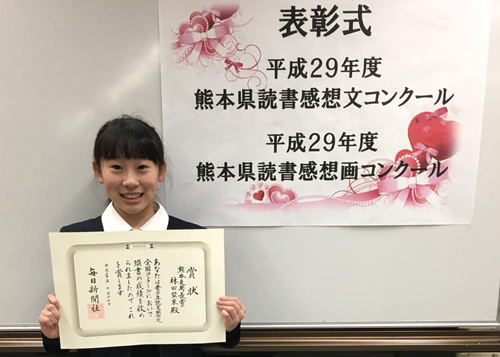 表彰式
平成29年度
熊本県読書感想文コンクール
平成29年度
熊本県読書感想画コンクール
賞状
殿
あなたは
全国コンクールにおいて
頭書の成績を収め
られましたのでこれ
を賞します
毎日新聞社